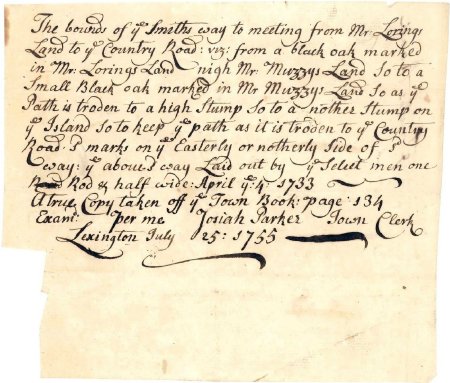 The bounds of yᵉ Smiths way to meeting from Mr. Lorings
Land to yᵉ Country Road: viz: from a black oak marked
in Mr: Lorings Land nigh Mr: Muzzys Land So to a
Small Black oak marked in Mr Muzzys Land So as yᵉ
Path is troden to a high Stump So to a nother Stump on
yᵉ Island So to keep yᵉ path as it is troden to yᵉ Country
Road: marks on yᵉ Easterly or notherly Side of
way: yᵉ aboveˢᵈ way Laid out by yᵉ Select men one
Road Rod & half wide: April yᵉ 4: 1733
A true Copy taken off yᵉ Town Book: page: 134
Examᵈ per me Josiah Parker Town Clerk
Lexington July 25: 1755